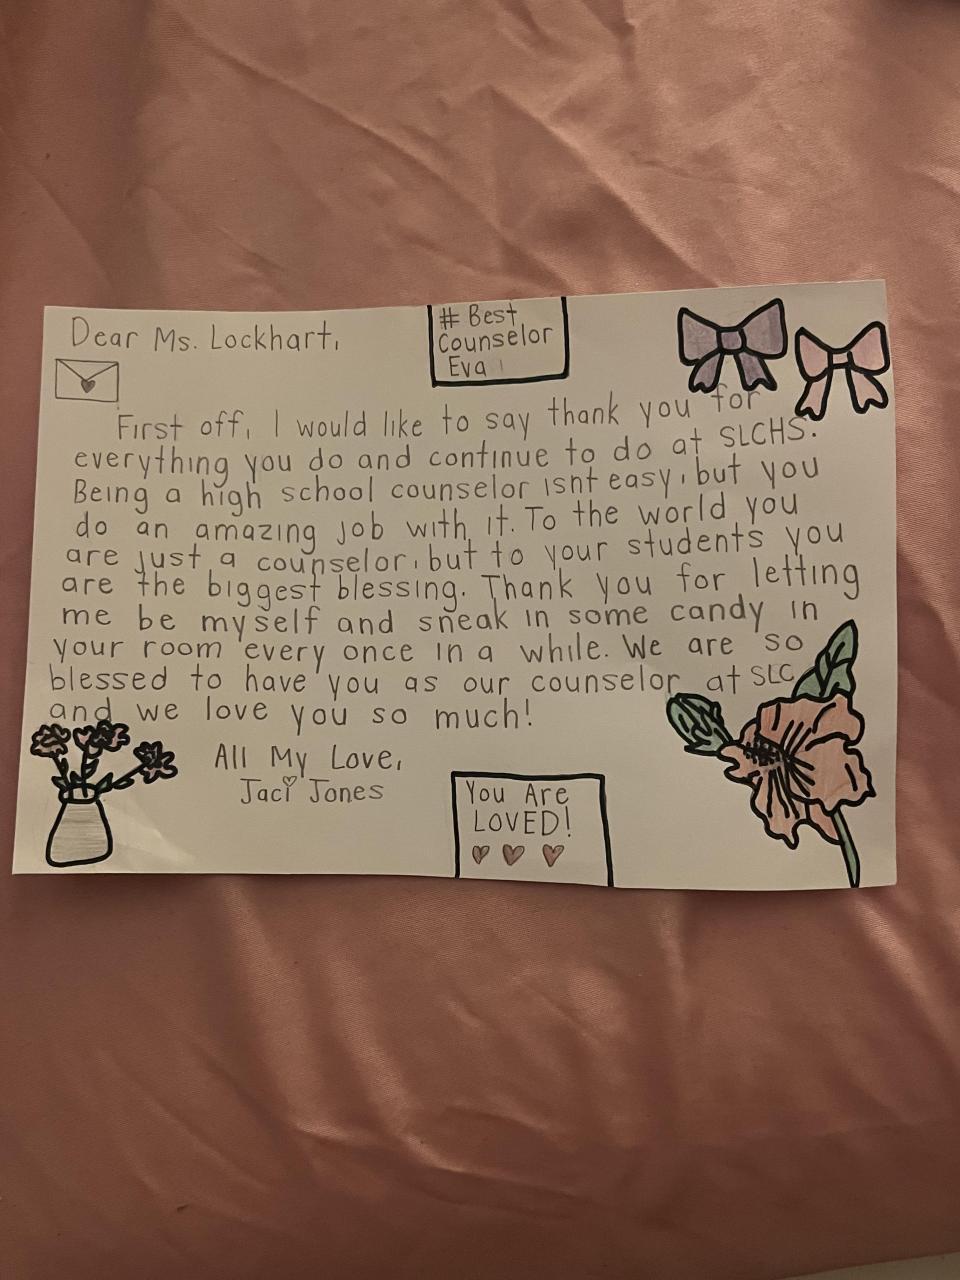 Dear Ms. Lockhart,
# Best
Counselor
Eva
First off, I would like to say thank you for
everything you do and continue to do at SLCHS.
Being a high school counselor isnt easy, but you
do an amazing job with it. To the world you
are just a counselor, but to your students you
are the biggest blessing. Thank you for letting
me be myself and sneak in some candy in
your room every once in a while. We are so
blessed to have you as our counselor at SLC
and we love you so much!
All My Love,
Jaci Jones
You Are
LOVED!